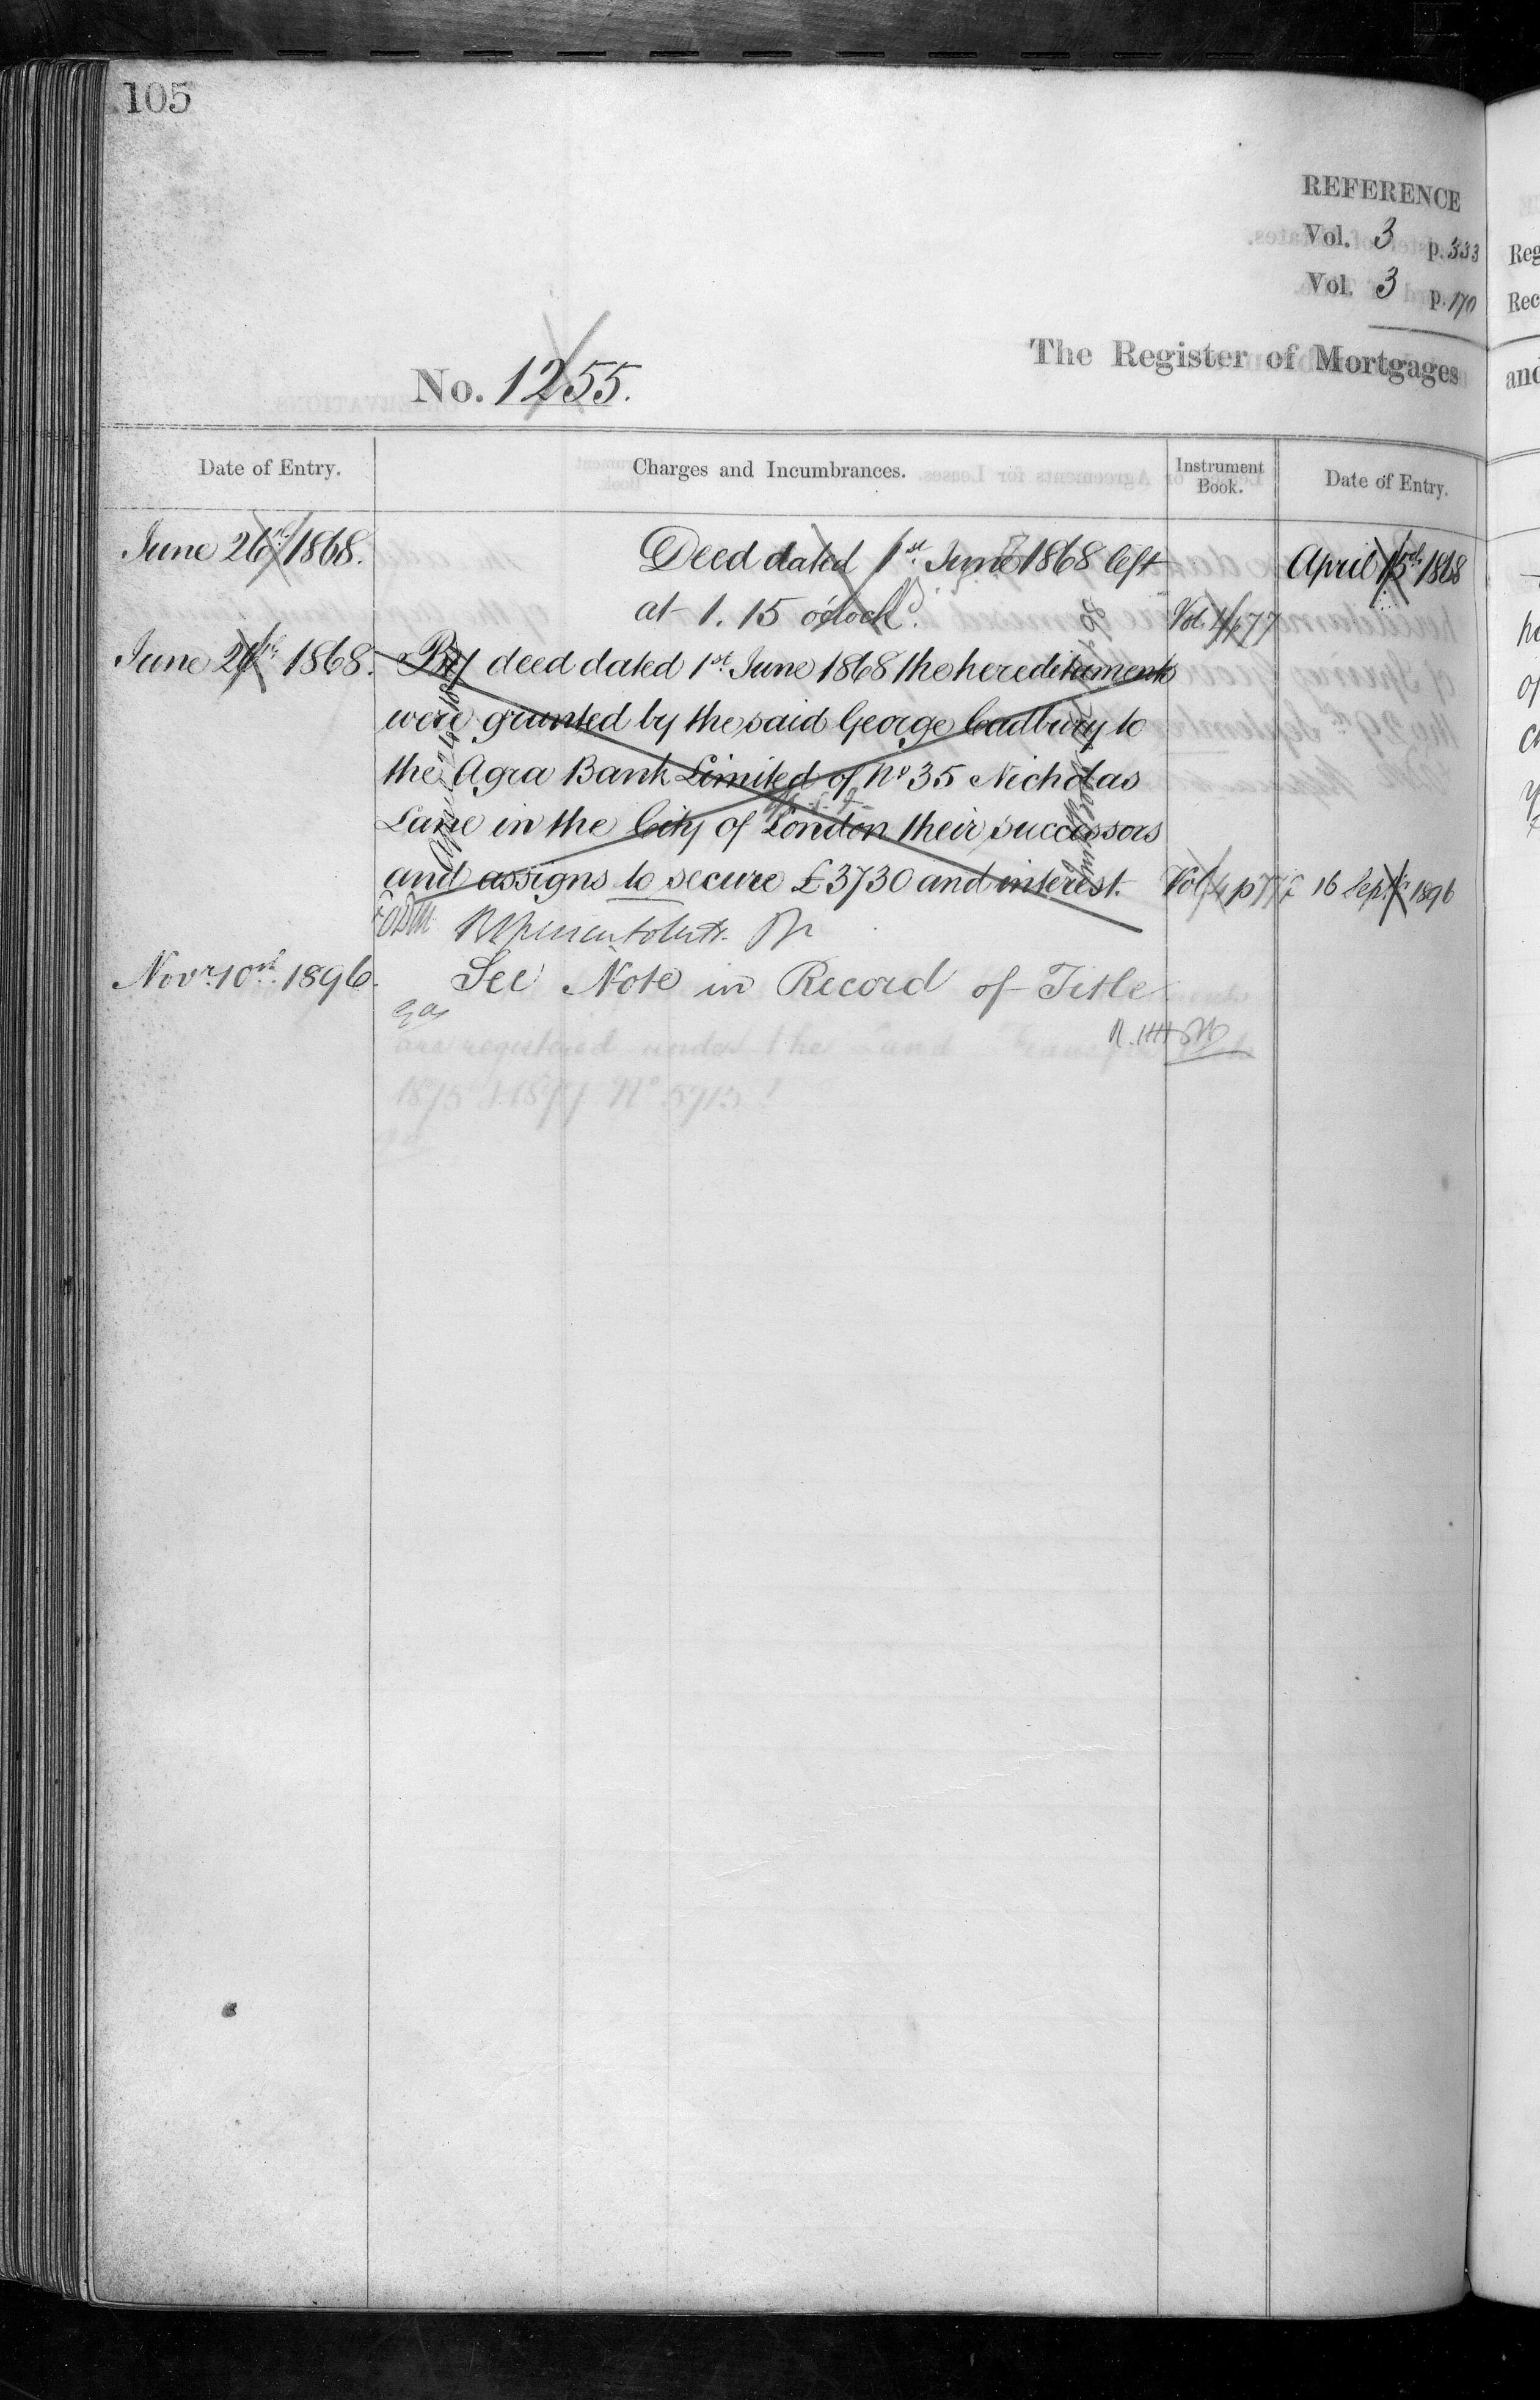 105
REFERENCE
Vol. 3 p. 333
Vol. 3 p. 170
No. 1255.
The Register of Mortgages
Date of Entry.
Charges and Incumbrances.
Instrument Book.
Date of Entry.
June 26th 1868.
Deed dated 1st June 1868 left
April 15th 1868
at 1.15 o'clock.
Vol. 4 p 77
June 26th 1868.
By deed dated 1st June 1868 the hereditaments
were granted by the said George Cadbury to
the Agra Bank Limited of No 35 Nicholas
Lane in the City of London their successors
and assigns to secure £3730 and interest.
Vol. 4 p 77
16 Sept 1896
Novr. 10th. 1896.
See Note in Record of Title
are registered under the Land Transfer
1875 & 1897 No 5713